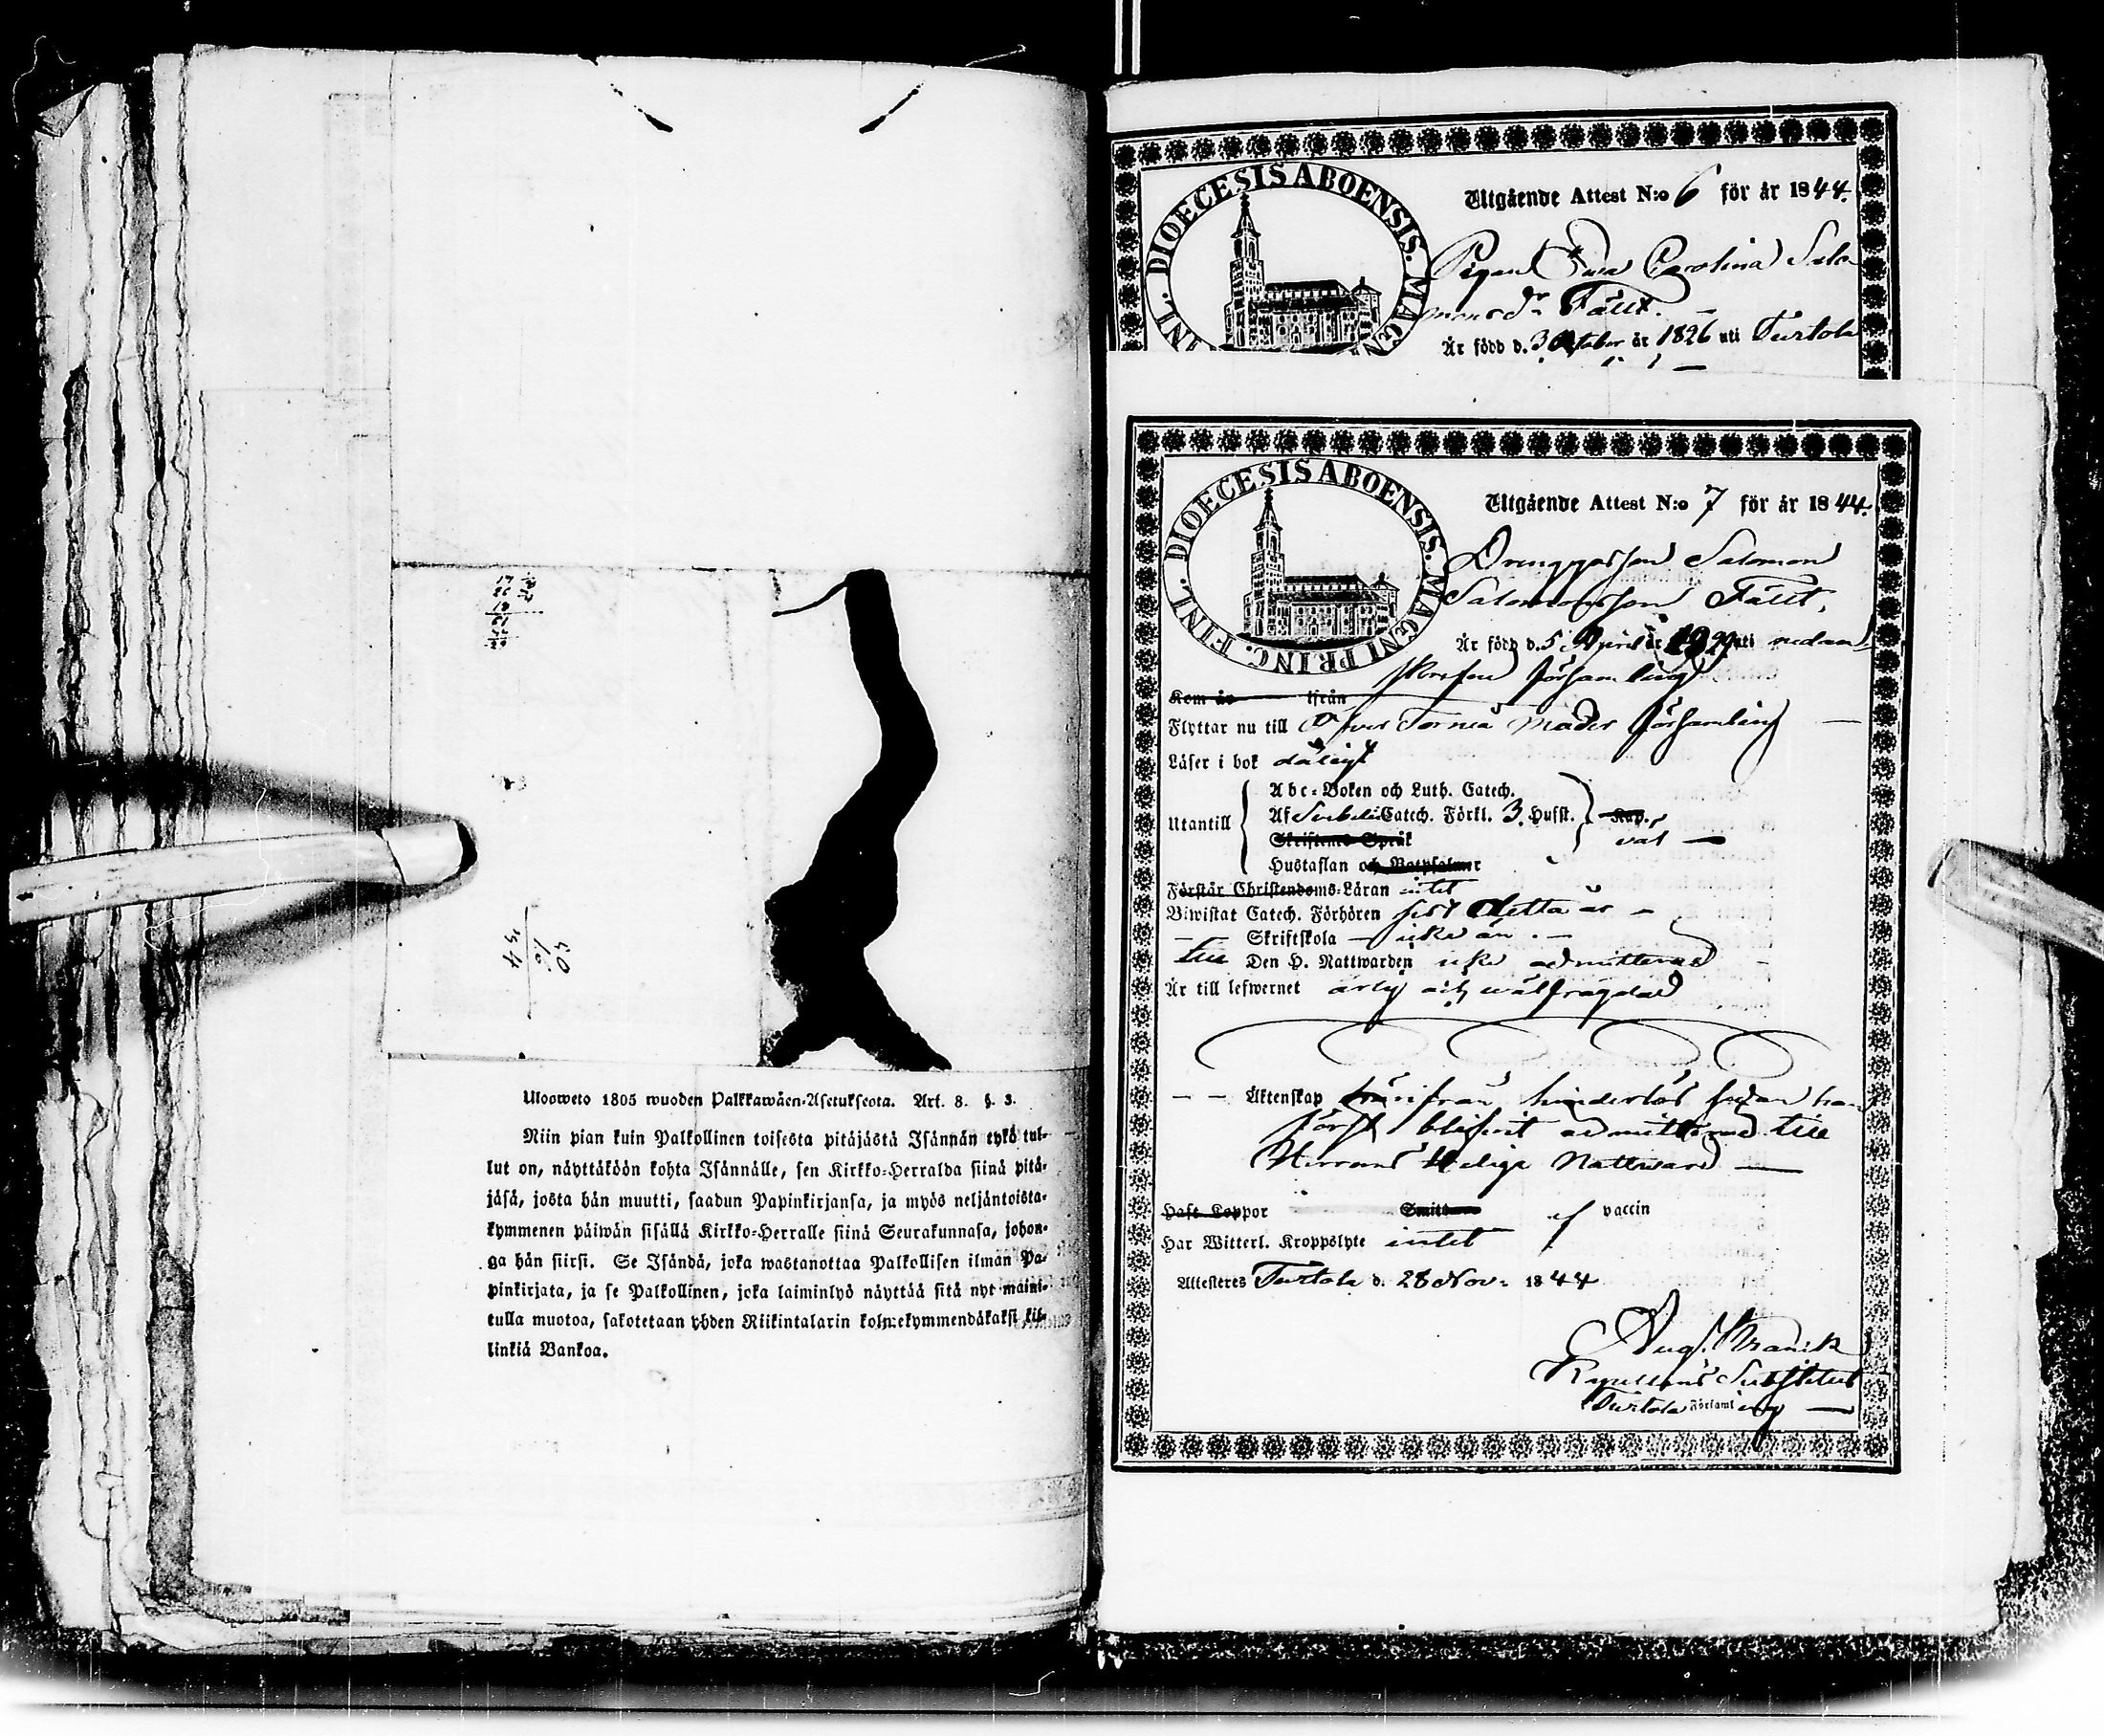 17
26
18
61
40
16
34
Ulosweto 1805 wuoden Palkkawäen-Asetuksesta. Art. 8. §. 3.
Niin pian kuin Palkollinen toisesta pitäjästä Isännän tykö tul-
lut on, näyttäköön kohta Isännälle, sen Kirkko-Herralda siinä pitä-
jäsä, josta hän muutti, saadun Papinkirjansa, ja myös neljäntoista-
kymmenen päiwän sisällä Kirkko-Herralle siinä Seurakunnasa, johon-
ga hän siirsi. Se Isändä, joka wastanottaa Palkollisen ilman Pa-
pinkirjata, ja se Palkollinen, joka laiminlyö näyttää sitä nyt maini-
tulla muotoa, sakotetaan yhden Riikintalarin kolmekymmendäkaksi kil-
linkiä Bankoa.
DIOECESIS ABOENSIS. MAGNI FINL.
Utgående Attest N:o 6 för år 1844.
Pigan Eva Carolina Salo
mons dr Fält.
Är född d. 3 October år 1826 uti Turtola
DIOECESIS ABOENSIS. MAGNI PRINC. FINL.
Utgående Attest N:o 7 för år 1844.
Drenggossen Salomon
Salomonsson Fält,
Är född d. 5 April år uti nedan
skrefne församling
Kom år ifrån
Flyttar nu till Öfver Torneå Moder församling
Läser i bok dåligt
Utantill
Abc-Boken och Luth. Catech.
Af Svebelii Catech. Förkl. 3. Hufst. Kap.
Skriftenes Språk
Hustaflan och Botpsalmer
Förstår Christendoms-Läran intet
Biwistat Catech. Förhören sist detta år
Skriftskola icke än
till Den H. Nattwarden icke admitterad
Är till lefwernet ärlig och wälfrägdad
Äktenskap härifrån hinderlös sedan han
först blifvit admitterad till
Herrans Heliga Nattvard
Haft Koppor Smitt af vaccin
Har Witterl. Kroppslyte intet
Attesteres Turtola d. 28 Nov. 1844
Aug.
Kapellans Substitut
Turtola Församling